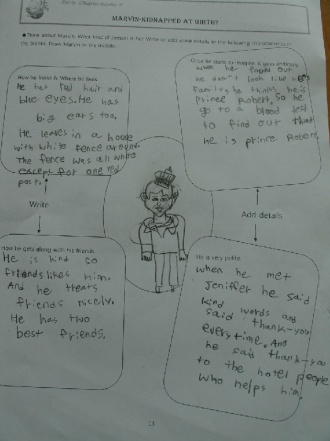 MARVIN-KIDNAPPED AT BIRTH?
Think about Marvin. What kind of person is he? Write or add some details in the following
the bubble. Draw Marvin in the middle.
How he looks & Where he lives
He has Red hair and
blue eyes. He has
big ears too,
He leaves in a house
with white fence around.
The fence was all white
except for one red
post.
when he found out
he doesn't look like
family, he thinks he is
Prince Robert, so he
go to a blood test
to find out that
he is prince Robert,
Write
Add details
How he gets along with his friends
He is kind so
friends likes him.
And he treats
friends nicely.
He has two
best friends.
He is very polite.
when he met
Jeniffer he said
kind words and
said thank-you
everytime. And
he said thank-you
to the hotel people
who helps him.